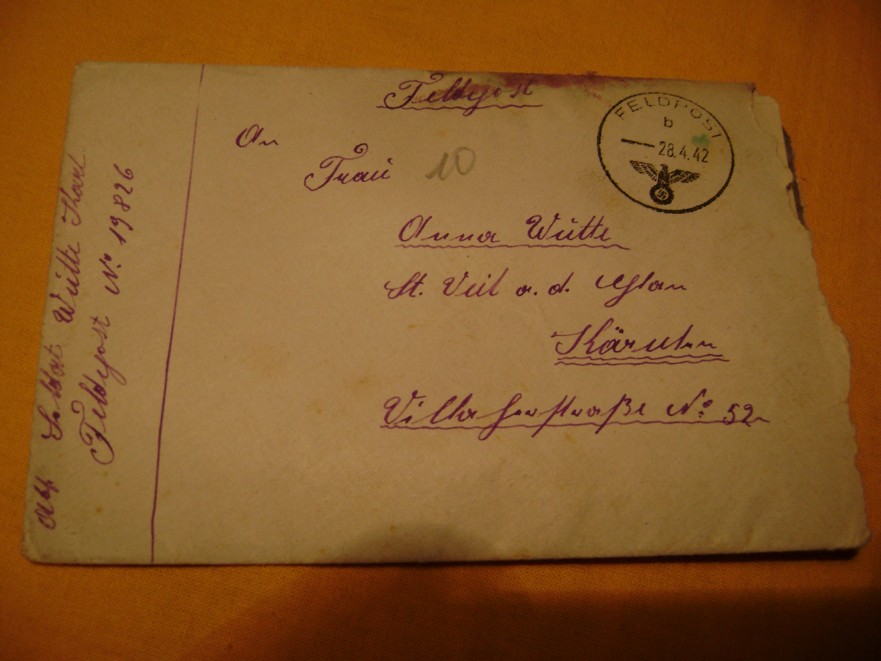 Feldpost
FELDPOST
b
28.4.42
An
Frau 10
Anna Wutte
St. Veit a. d. Glan
Kärnten
Villacherstraße No. 52
Abs. Soldat Wutte Karl
Feldpost No. 19826